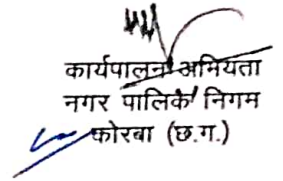 कार्यपालन अभियंता
नगर पालिके निगम
कोरबा (छ.ग.)